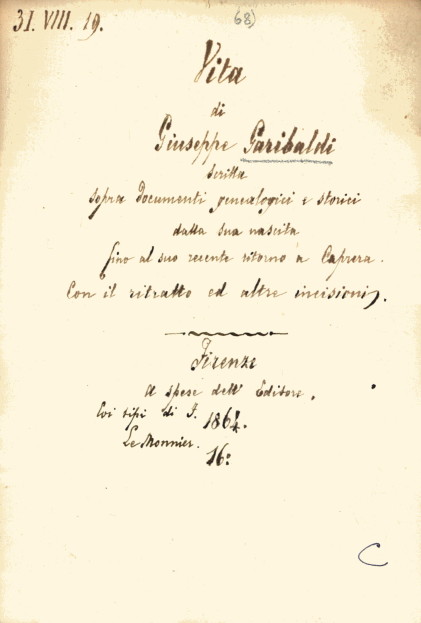 31. VIII. 19.
68)
Vita
di
Giuseppe Garibaldi
scritta
sopra documenti genealogici e storici
dalla sua nascita
fino al suo recente ritorno a Caprera.
Con il ritratto ed altre incisioni.
Firenze
A spese dell' Editore.
Coi tipi di F.
1864.
Le Monnier.
16º
C